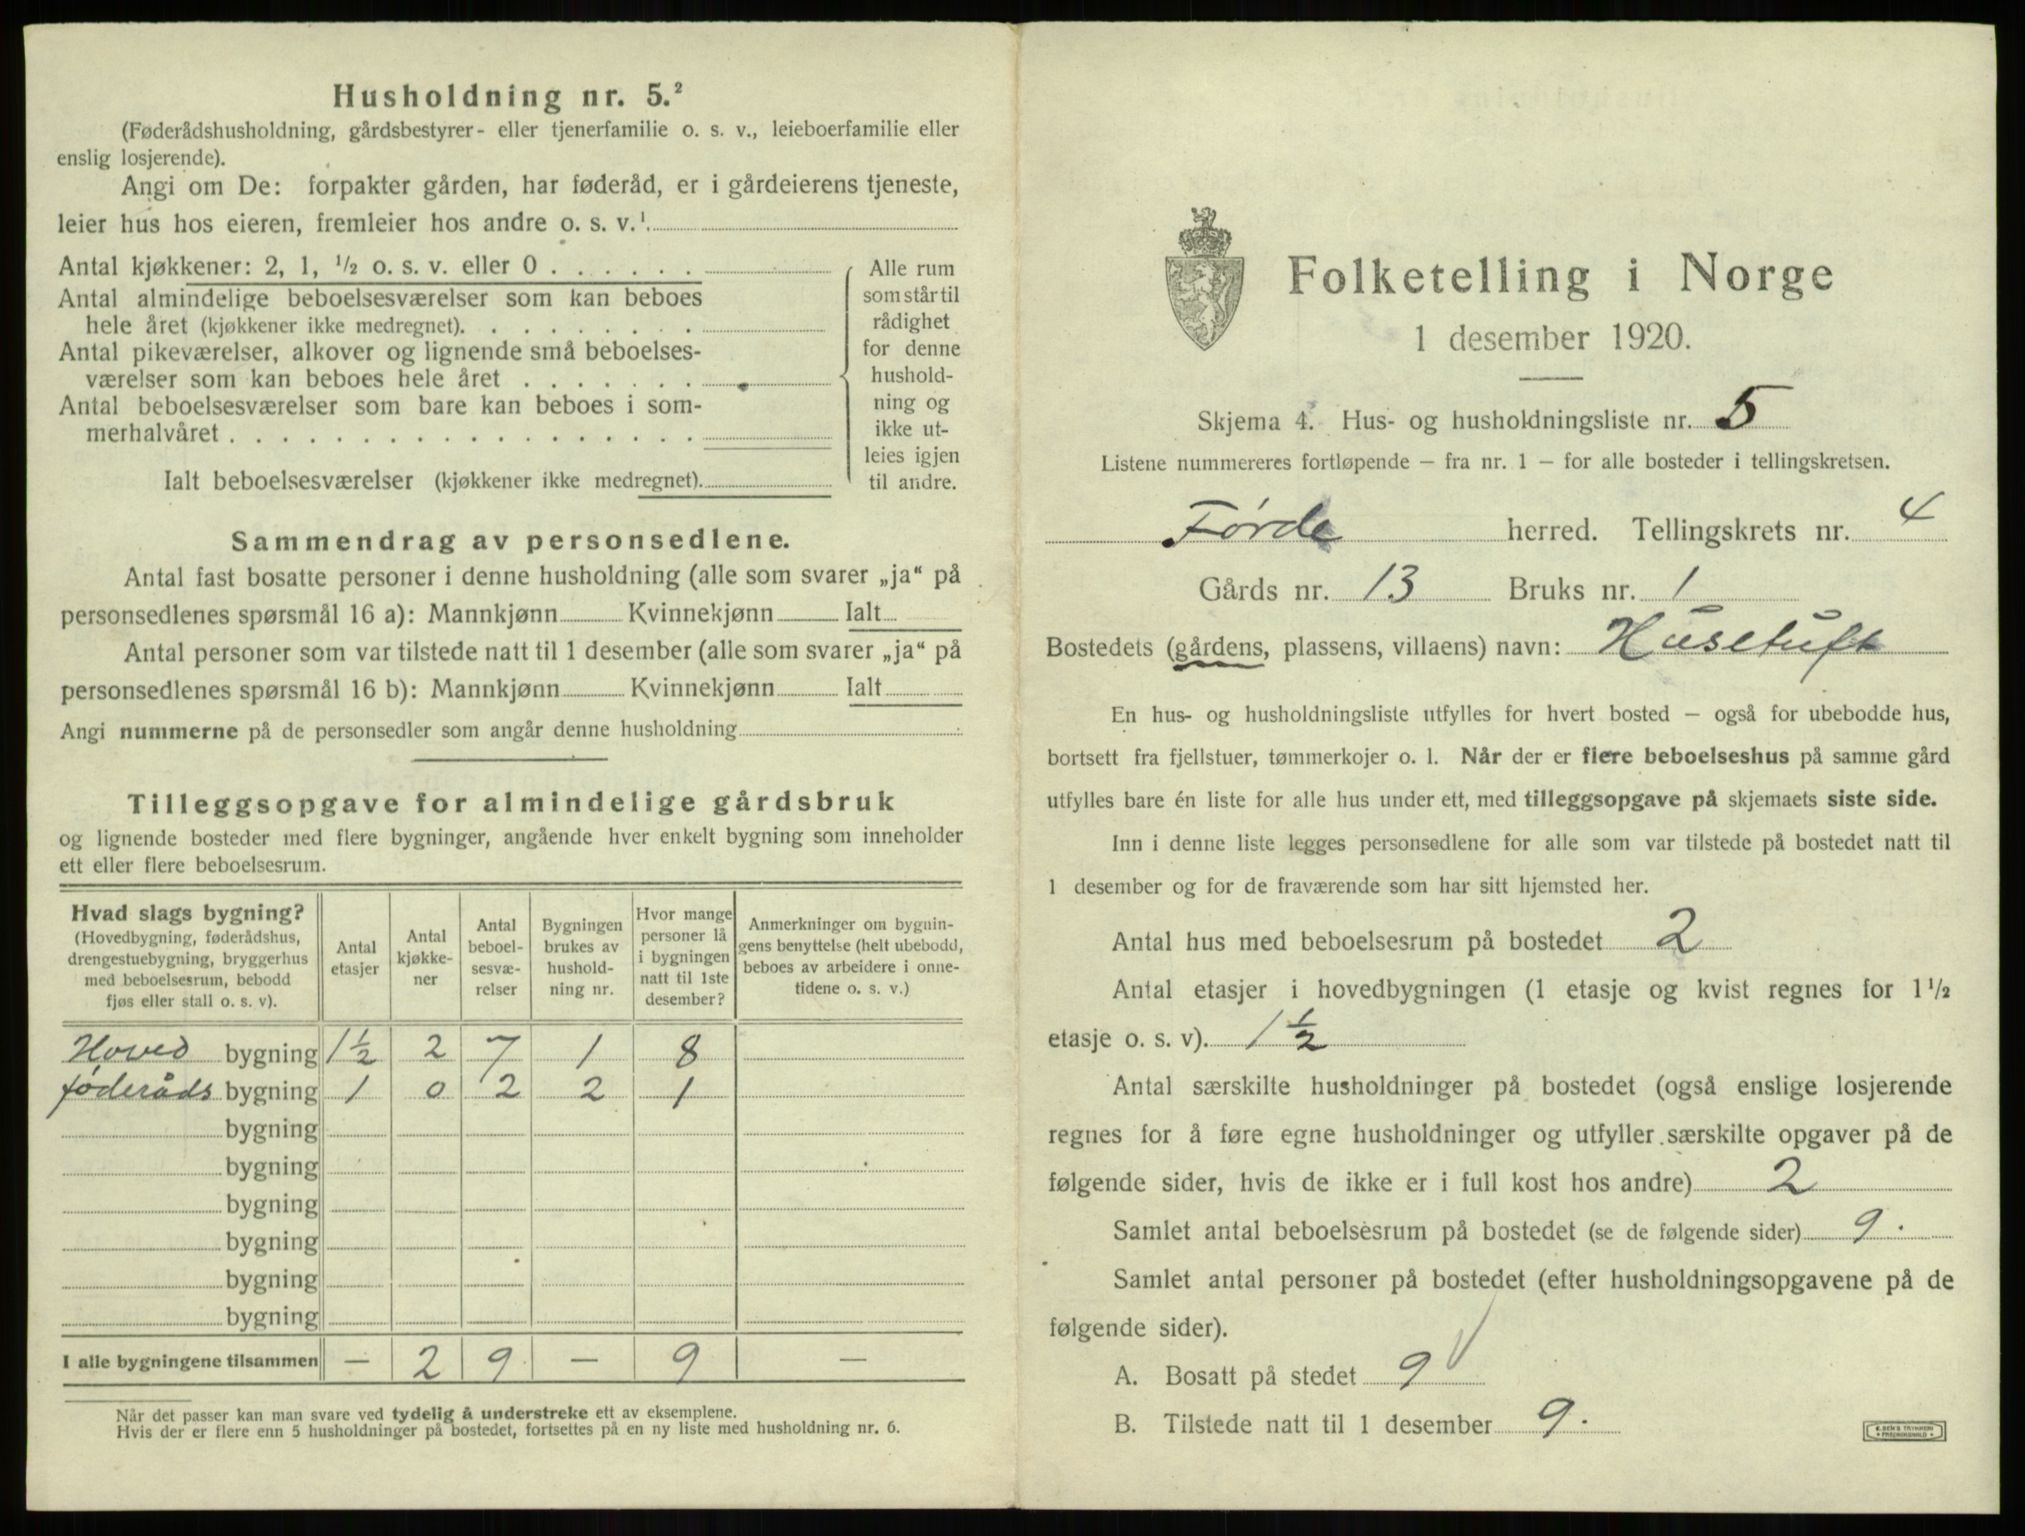 Husholdning nr. 5.²
(Føderådshusholdning, gårdsbestyrer- eller tjenerfamilie o. s. v., leieboerfamilie eller
enslig losjerende).
Angi om De: forpakter gården, har føderåd, er i gårdeierens tjeneste,
leier hus hos eieren, fremleier hos andre o. s. v.¹
Antal kjøkkener: 2, 1, ½ o. s. v. eller 0 . . . . . .
Antal almindelige beboelsesværelser som kan beboes
hele året (kjøkkener ikke medregnet). . . . . . . . .
Antal pikeværelser, alkover og lignende små beboelses-
værelser som kan beboes hele året . . . . . . .
Antal beboelsesværelser som bare kan beboes i som-
merhalvåret . . . . . . . . . . . . . . . . . .
Ialt beboelsesværelser (kjøkkener ikke medregnet).
Alle rum
som står til
rådighet
for denne
hushold-
ning og
ikke ut-
leies igjen
til andre.
Sammendrag av personsedlene.
Antal fast bosatte personer i denne husholdning (alle som svarer „ja“ på
personsedlenes spørsmål 16 a): Mannkjønn Kvinnekjønn Ialt
Antal personer som var tilstede natt til 1 desember (alle som svarer „ja“ på
personsedlenes spørsmål 16 b): Mannkjønn Kvinnekjønn Ialt
Angi nummerne på de personsedler som angår denne husholdning
Tilleggsopgave for almindelige gårdsbruk
og lignende bosteder med flere bygninger, angående hver enkelt bygning som inneholder
ett eller flere beboelsesrum.
Hvad slags bygning?
(Hovedbygning, føderådshus,
drengestuebygning, bryggerhus
med beboelsesrum, bebodd
fjøs eller stall o. s. v).
Antal
etasjer
Antal
kjøkke-
ner
Antal
beboel-
sesvæ-
relser
Bygningen
brukes av
hushold-
ning nr.
Hvor mange
personer lå
i bygningen
natt til 1ste
desember?
Anmerkninger om bygnin-
gens benyttelse (helt ubebodd,
beboes av arbeidere i onne-
tidene o. s. v.)
Hoved bygning 1½ 2 7 1 8
føderåds bygning 1 0 2 2 1
bygning
bygning
bygning
bygning
bygning
bygning
I alle bygningene tilsammen — 2 9 — 9 —
Når det passer kan man svare ved tydelig å understreke ett av eksemplene.
Hvis der er flere enn 5 husholdninger på bostedet, fortsettes på en ny liste med husholdning nr. 6.
Folketelling i Norge
1 desember 1920.
Skjema 4. Hus- og husholdningsliste nr. 5
Listene nummereres fortløpende — fra nr. 1 — for alle bosteder i tellingskretsen.
Førde herred. Tellingskrets nr. 4
Gårds nr. 13 Bruks nr. 1
Bostedets (gårdens, plassens, villaens) navn: Husetuft
En hus- og husholdningsliste utfylles for hvert bosted — også for ubebodde hus,
bortsett fra fjellstuer, tømmerkojer o. l. Når der er flere beboelseshus på samme gård
utfylles bare én liste for alle hus under ett, med tilleggsopgave på skjemaets siste side.
Inn i denne liste legges personsedlene for alle som var tilstede på bostedet natt til
1 desember og for de fraværende som har sitt hjemsted her.
Antal hus med beboelsesrum på bostedet 2
Antal etasjer i hovedbygningen (1 etasje og kvist regnes for 1½
etasje o. s. v). 1½
Antal særskilte husholdninger på bostedet (også enslige losjerende
regnes for å føre egne husholdninger og utfyller særskilte opgaver på de
følgende sider, hvis de ikke er i full kost hos andre) 2
Samlet antal beboelsesrum på bostedet (se de følgende sider) 9.
Samlet antal personer på bostedet (efter husholdningsopgavene på de
følgende sider).
A. Bosatt på stedet 9
B. Tilstede natt til 1 desember 9.